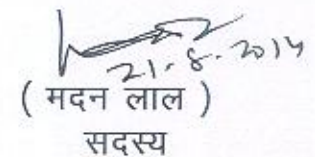 21.8.2014
( मदन लाल )
सदस्य